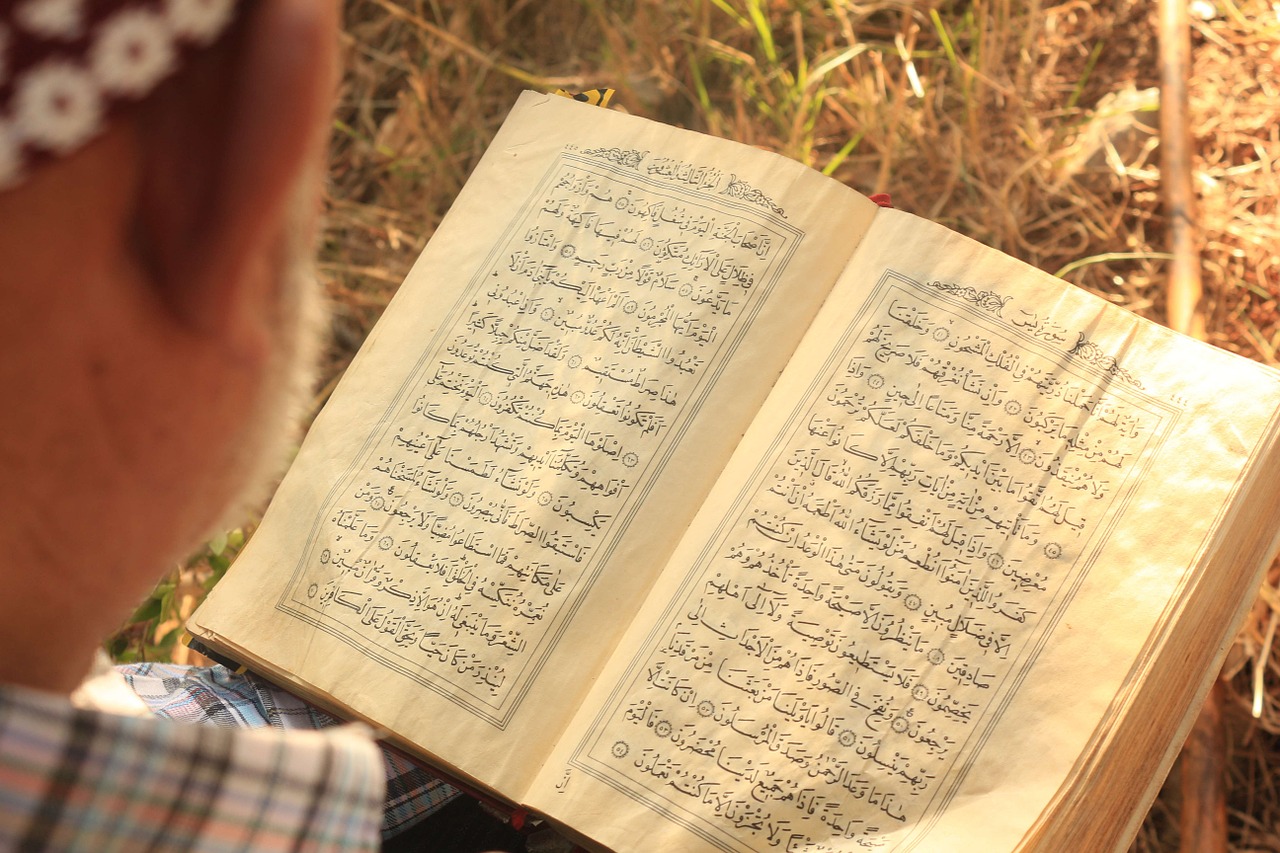 سُورَةُ يٰسٓ
وَاٰيَةٌ لَهُمْ اَنَّا حَمَلْنَا ذُرِّيَّتَهُمْ فِى الْفُلْكِ الْمَشْحُونِ ﴿٤١﴾ وَخَلَقْنَا
لَهُمْ مِنْ مِثْلِهِ مَا يَرْكَبُونَ ﴿٤٢﴾ وَاِنْ نَشَأْ نُغْرِقْهُمْ فَلَا صَرِيخَ لَهُمْ
وَلَا هُمْ يُنْقَذُونَ ﴿٤٣﴾ اِلَّا رَحْمَةً مِنَّا وَمَتَاعًا اِلٰى حِينٍ ﴿٤٤﴾ وَاِذَا
قِيلَ لَهُمُ اتَّقُوا مَا بَيْنَ اَيْدِيكُمْ وَمَا خَلْفَكُمْ لَعَلَّكُمْ تُرْحَمُونَ
﴿٤٥﴾ وَمَا تَأْتِيهِمْ مِنْ اٰيَةٍ مِنْ اٰيَاتِ رَبِّهِمْ اِلَّا كَانُوا عَنْهَا
مُعْرِضِينَ ﴿٤٦﴾ وَاِذَا قِيلَ لَهُمْ اَنْفِقُوا مِمَّا رَزَقَكُمُ اللّٰهُ قَالَ الَّذِينَ
كَفَرُوا لِلَّذِينَ اٰمَنُوا اَنُطْعِمُ مَنْ لَوْ يَشَاءُ اللّٰهُ اَطْعَمَهُ اِنْ اَنْتُمْ
اِلَّا فِى ضَلَالٍ مُبِينٍ ﴿٤٧﴾ وَيَقُولُونَ مَتٰى هٰذَا الْوَعْدُ اِنْ كُنْتُمْ
صَادِقِينَ ﴿٤٨﴾ مَا يَنْظُرُونَ اِلَّا صَيْحَةً وَاحِدَةً تَأْخُذُهُمْ وَهُمْ
يَخِصِّمُونَ ﴿٤٩﴾ فَلَا يَسْتَطِيعُونَ تَوْصِيَةً وَلَا اِلٰى اَهْلِهِمْ
يَرْجِعُونَ ﴿٥٠﴾ وَنُفِخَ فِى الصُّورِ فَاِذَا هُمْ مِنَ الْاَجْدَاثِ اِلٰى
رَبِّهِمْ يَنْسِلُونَ ﴿٥١﴾ قَالُوا يَا وَيْلَنَا مَنْ بَعَثَنَا مِنْ مَرْقَدِنَا
هٰذَا مَا وَعَدَ الرَّحْمٰنُ وَصَدَقَ الْمُرْسَلُونَ ﴿٥٢﴾ اِنْ كَانَتْ اِلَّا
صَيْحَةً وَاحِدَةً فَاِذَا هُمْ جَمِيعٌ لَدَيْنَا مُحْضَرُونَ ﴿٥٣﴾ فَالْيَوْمَ
شَيْئًا وَلَا تُجْزَوْنَ اِلَّا مَا كُنْتُمْ تَعْمَلُونَ ﴿٥٤﴾
اِنَّ
اَلْجُزْءُ الثَّالِثُ وَالْعِشْرُونَ
اِنَّ اَصْحَابَ الْجَنَّةِ الْيَوْمَ فِى شُغُلٍ فَاكِهُونَ ﴿٥٥﴾ هُمْ وَاَزْوَاجُهُمْ
فِى ظِلَالٍ عَلَى الْاَرَائِكِ مُتَّكِؤُنَ ﴿٥٦﴾ لَهُمْ فِيهَا فَاكِهَةٌ وَلَهُمْ
مَا يَدَّعُونَ ﴿٥٧﴾ سَلَامٌ قَوْلًا مِنْ رَبٍّ رَحِيمٍ ﴿٥٨﴾ وَامْتَازُوا
الْيَوْمَ اَيُّهَا الْمُجْرِمُونَ ﴿٥٩﴾ اَلَمْ اَعْهَدْ اِلَيْكُمْ يَا بَنِى اٰدَمَ اَنْ لَا
تَعْبُدُوا الشَّيْطَانَ اِنَّهُ لَكُمْ عَدُوٌّ مُبِينٌ ﴿٦٠﴾ وَاَنِ اعْبُدُونِى
هٰذَا صِرَاطٌ مُسْتَقِيمٌ ﴿٦١﴾ وَلَقَدْ اَضَلَّ مِنْكُمْ جِبِلًّا كَثِيرًا
اَفَلَمْ تَكُونُوا تَعْقِلُونَ ﴿٦٢﴾ هٰذِهِ جَهَنَّمُ الَّتِى كُنْتُمْ تُوعَدُونَ
﴿٦٣﴾ اِصْلَوْهَا الْيَوْمَ بِمَا كُنْتُمْ تَكْفُرُونَ ﴿٦٤﴾ اَلْيَوْمَ نَخْتِمُ عَلٰى
اَفْوَاهِهِمْ وَتُكَلِّمُنَا اَيْدِيهِمْ وَتَشْهَدُ اَرْجُلُهُمْ بِمَا كَانُوا
يَكْسِبُونَ ﴿٦٥﴾ وَلَوْ نَشَاءُ لَطَمَسْنَا عَلٰى اَعْيُنِهِمْ
فَاسْتَبَقُوا الصِّرَاطَ فَاَنّٰى يُبْصِرُونَ ﴿٦٦﴾ وَلَوْ نَشَاءُ لَمَسَخْنَاهُمْ
عَلٰى مَكَانَتِهِمْ فَمَا اسْتَطَاعُوا مُضِيًّا وَلَا يَرْجِعُونَ ﴿٦٧﴾ وَمَنْ
نُعَمِّرْهُ نُنَكِّسْهُ فِى الْخَلْقِ اَفَلَا يَعْقِلُونَ ﴿٦٨﴾ وَمَا عَلَّمْنَاهُ
الشِّعْرَ وَمَا يَنْبَغِى لَهُ اِنْ هُوَ اِلَّا ذِكْرٌ وَقُرْاٰنٌ مُبِينٌ ﴿٦٩﴾
لِيُنْذِرَ مَنْ كَانَ حَيًّا وَيَحِقَّ الْقَوْلُ عَلَى الْكَافِرِينَ ﴿٧٠﴾